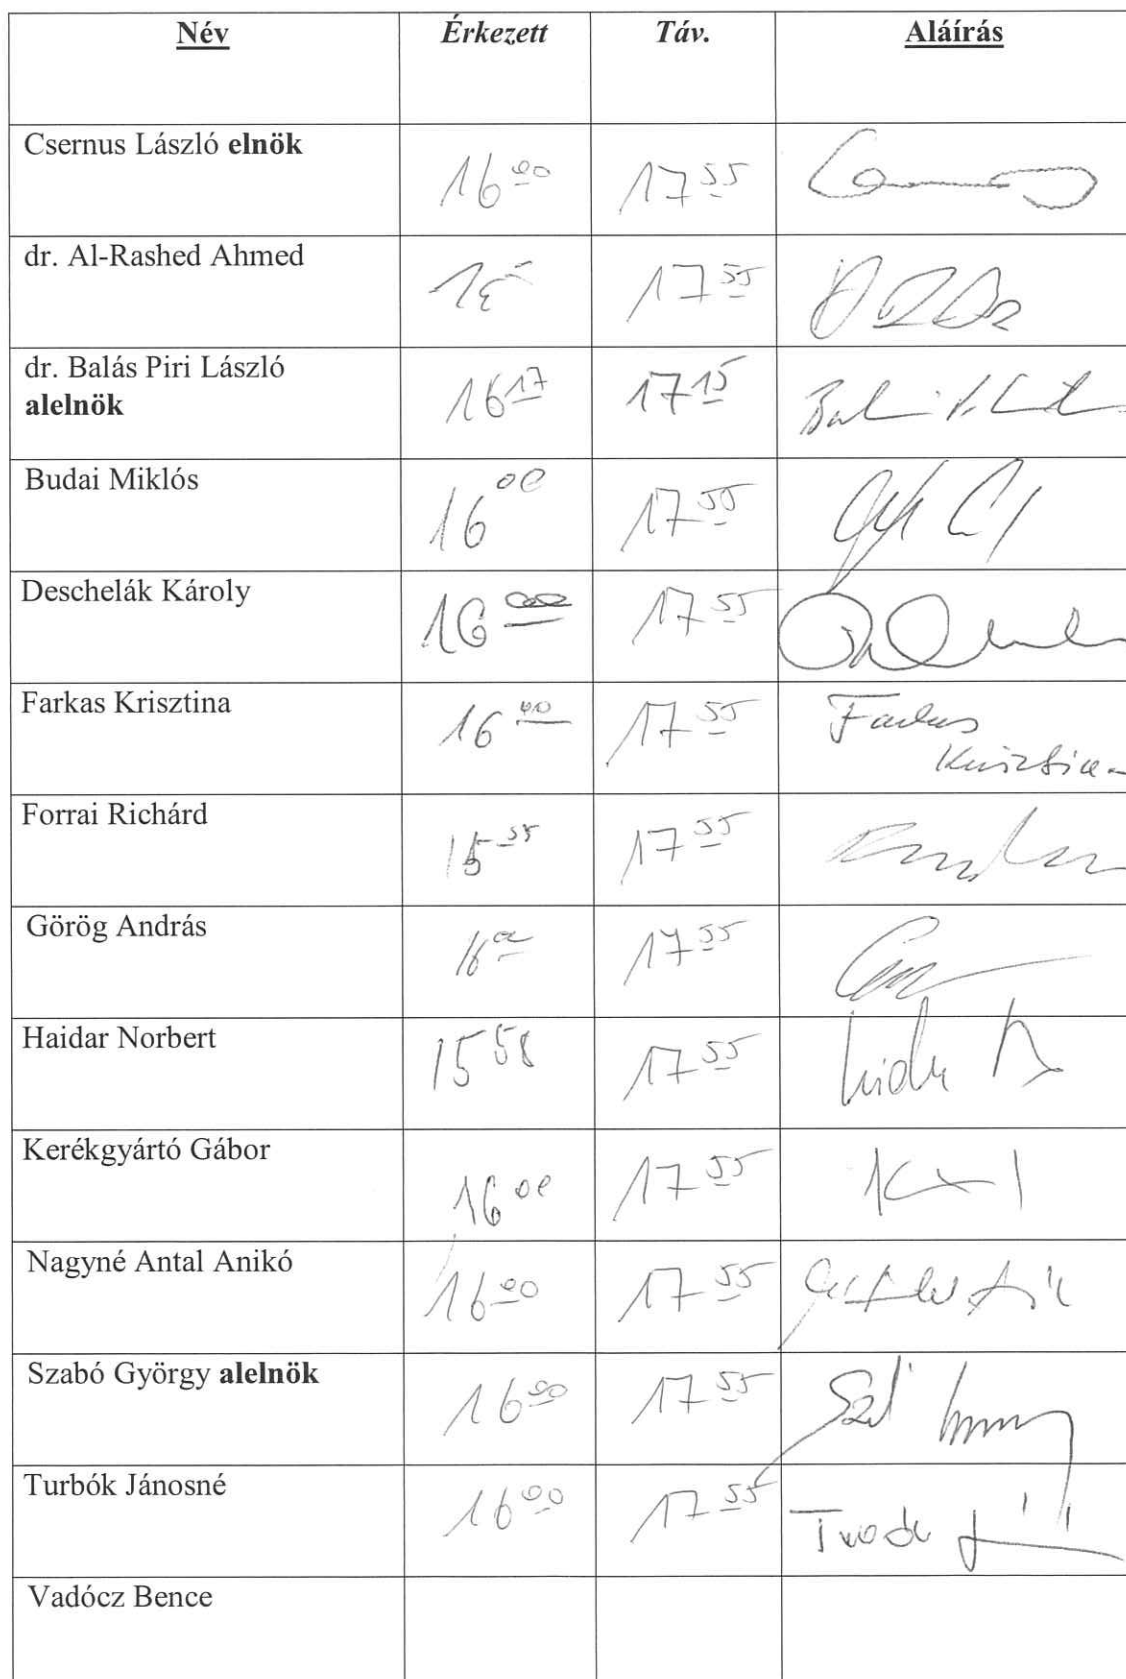 Név Érkezett Táv. Aláírás
Csernus László elnök 16 00 17 55
dr. Al-Rashed Ahmed 17 55
dr. Balás Piri László
alelnök 16 17 17 15
Budai Miklós 16 00 17 55
Deschelák Károly 16 00 17 55
Farkas Krisztina 16 00 17 55 Farkas
Krisztina
Forrai Richárd 15 55 17 55
Görög András 17 55
Haidar Norbert 15 58 17 55
Kerékgyártó Gábor 16 00 17 55
Nagyné Antal Anikó 16 00 17 55
Szabó György alelnök 16 00 17 55
Turbók Jánosné 16 00 17 55
Vadócz Bence